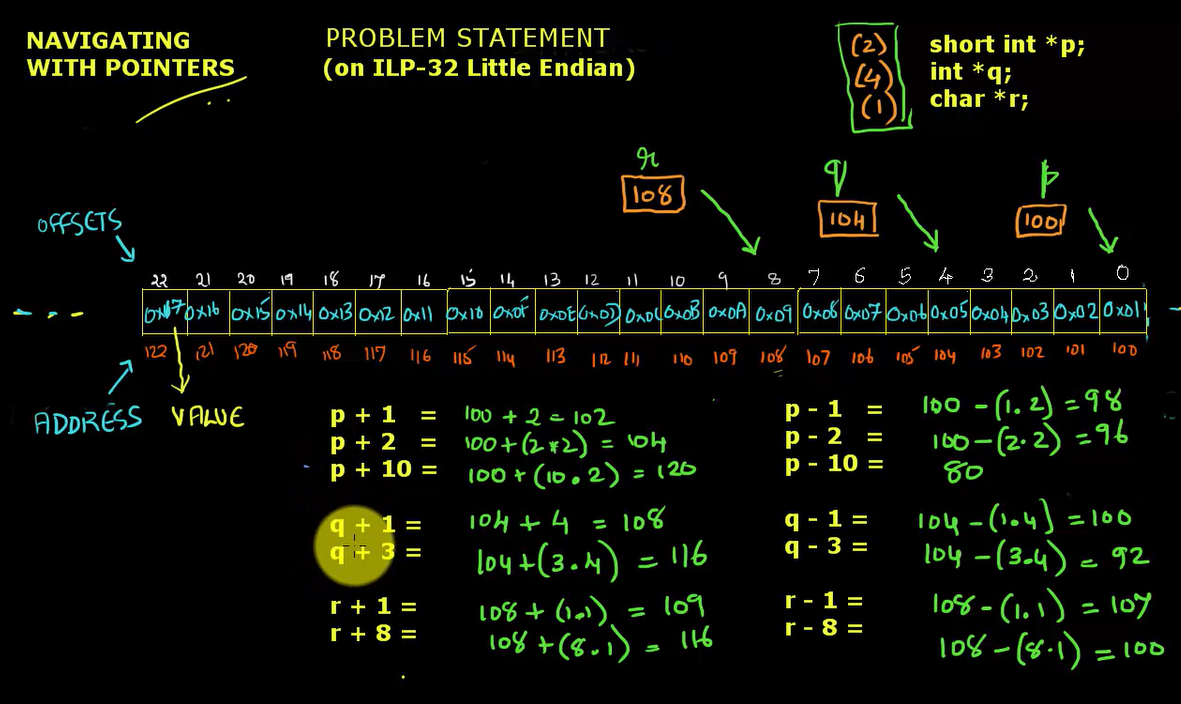 NAVIGATING
WITH POINTERS
PROBLEM STATEMENT
(on ILP-32 Little Endian)
(2)
(4)
(1)
short int *p;
int *q;
char *r;
r
108
q
104
p
100
OFFSETS
22 21 20 19 18 17 16 15 14 13 12 11 10 9 8 7 6 5 4 3 2 1 0
0x17 0x16 0x15 0x14 0x13 0x12 0x11 0x10 0x0F 0x0E 0x0D 0x0C 0x0B 0x0A 0x09 0x08 0x07 0x06 0x05 0x04 0x03 0x02 0x01
122 121 120 119 118 117 116 115 114 113 112 111 110 109 108 107 106 105 104 103 102 101 100
ADDRESS VALUE
p + 1 = 100 + 2 = 102
p + 2 = 100+(2*2) = 104
p + 10 = 100+(10.2) = 120
p - 1 = 100 - (1.2) = 98
p - 2 = 100-(2.2) = 96
p - 10 = 80
q + 1 = 104 + 4 = 108
q + 3 = 104+(3.4) = 116
q - 1 = 104-(1.4] = 100
q - 3 = 104-(3.4) = 92
r + 1 = 108 + (1.1) = 109
r + 8 = 108+(8.1) = 116
r - 1 = 108-(1.1) = 107
r - 8 = 108-(8.1) = 100